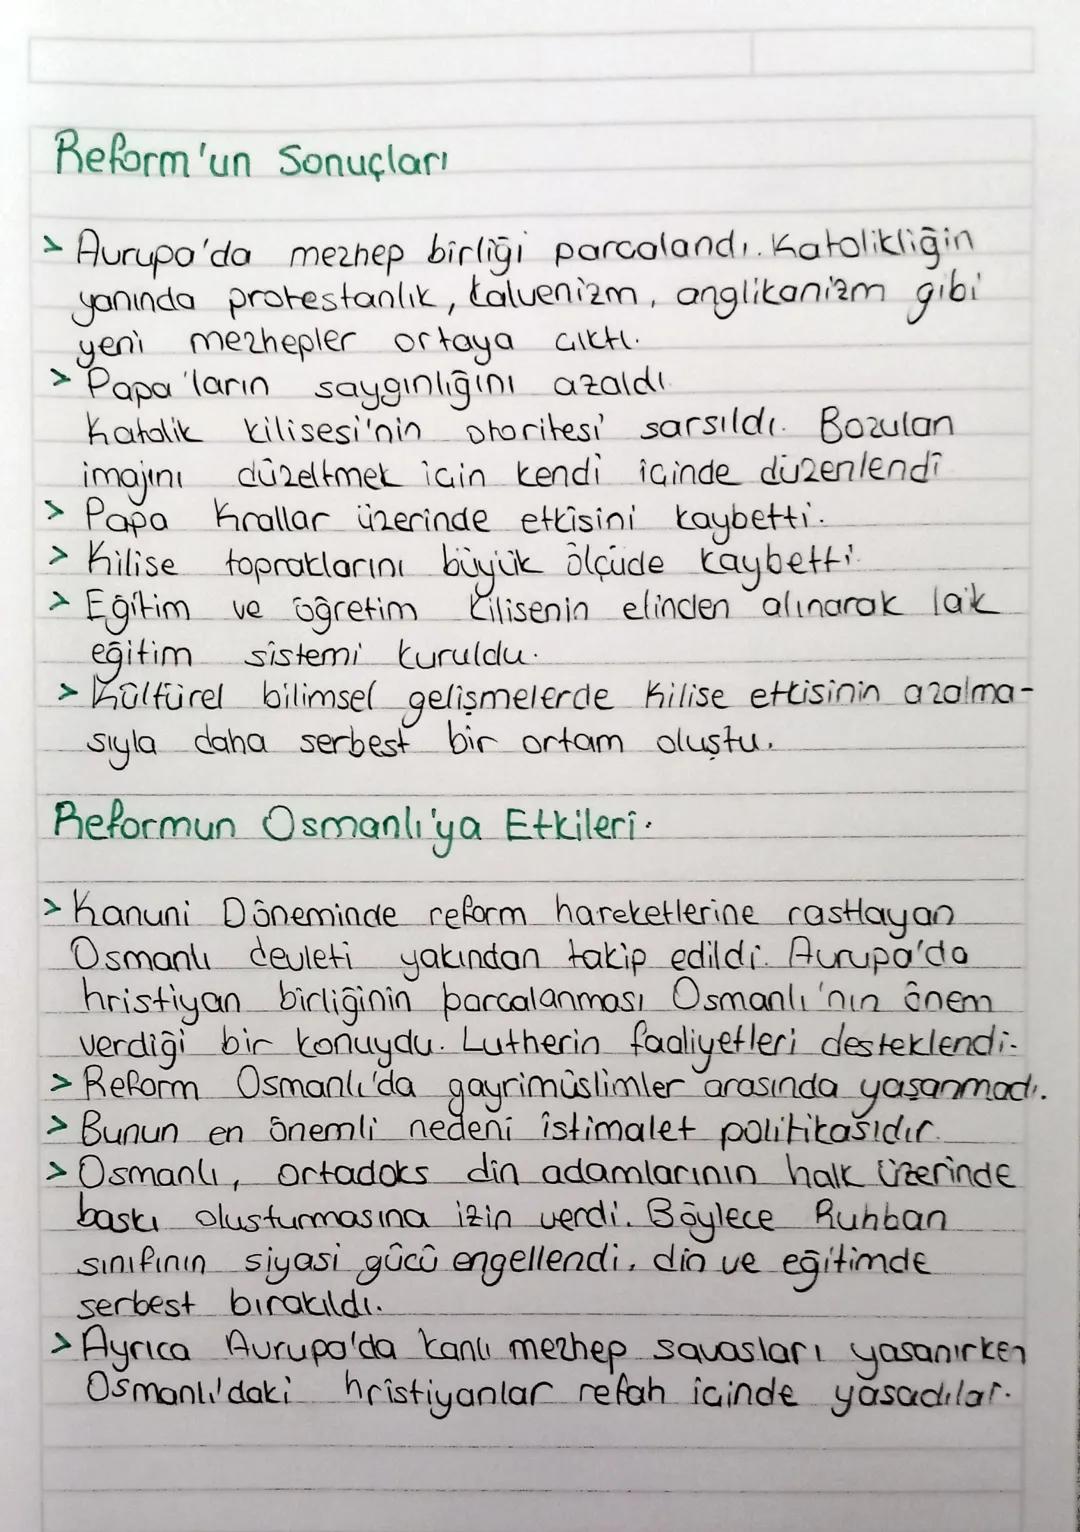 Reform'un Sonuçları
> Avrupa'da mezhep birliği parcalandı. Katolikliğin
yanında protestanlık, kalvenizm, anglikanizm gibi
yeni mezhepler ortaya cıktı.
> Papa'ların saygınlığını azaldı.
Katolik kilisesi'nin otoritesi sarsıldı. Bozulan
imajını düzeltmek icin kendi içinde düzenlendi
> Papa Krallar üzerinde etkisini kaybetti.
> Kilise topraklarını büyük ölçüde kaybetti.
> Eğitim ve öğretim kilisenin elinden alınarak laik
eğitim sistemi kuruldu.
> Kültürel bilimsel gelişmelerde kilise etkisinin azalma-
sıyla daha serbest bir ortam oluştu.
Reformun Osmanlı'ya Etkileri.
> Kanuni Döneminde reform hareketlerine rastlayan
Osmanlı devleti yakından takip edildi. Avrupa'da
hristiyan birliğinin parcalanması Osmanlı'nın önem
verdiği bir konuydu. Lutherin faaliyetleri desteklendi.
> Reform Osmanlı'da gayrimüslimler arasında yaşanmadı.
> Bunun en önemli nedeni istimalet politikasıdır.
> Osmanlı, ortadoks din adamlarının halk üzerinde
baskı olusturmasına izin verdi. Böylece Ruhban
sınıfının siyasi gücü engellendi, din ve eğitimde
serbest bırakıldı.
> Ayrıca Avrupa'da kanlı mezhep savasları yasanırken
Osmanlı'daki hristiyanlar refah icinde yasadılar.